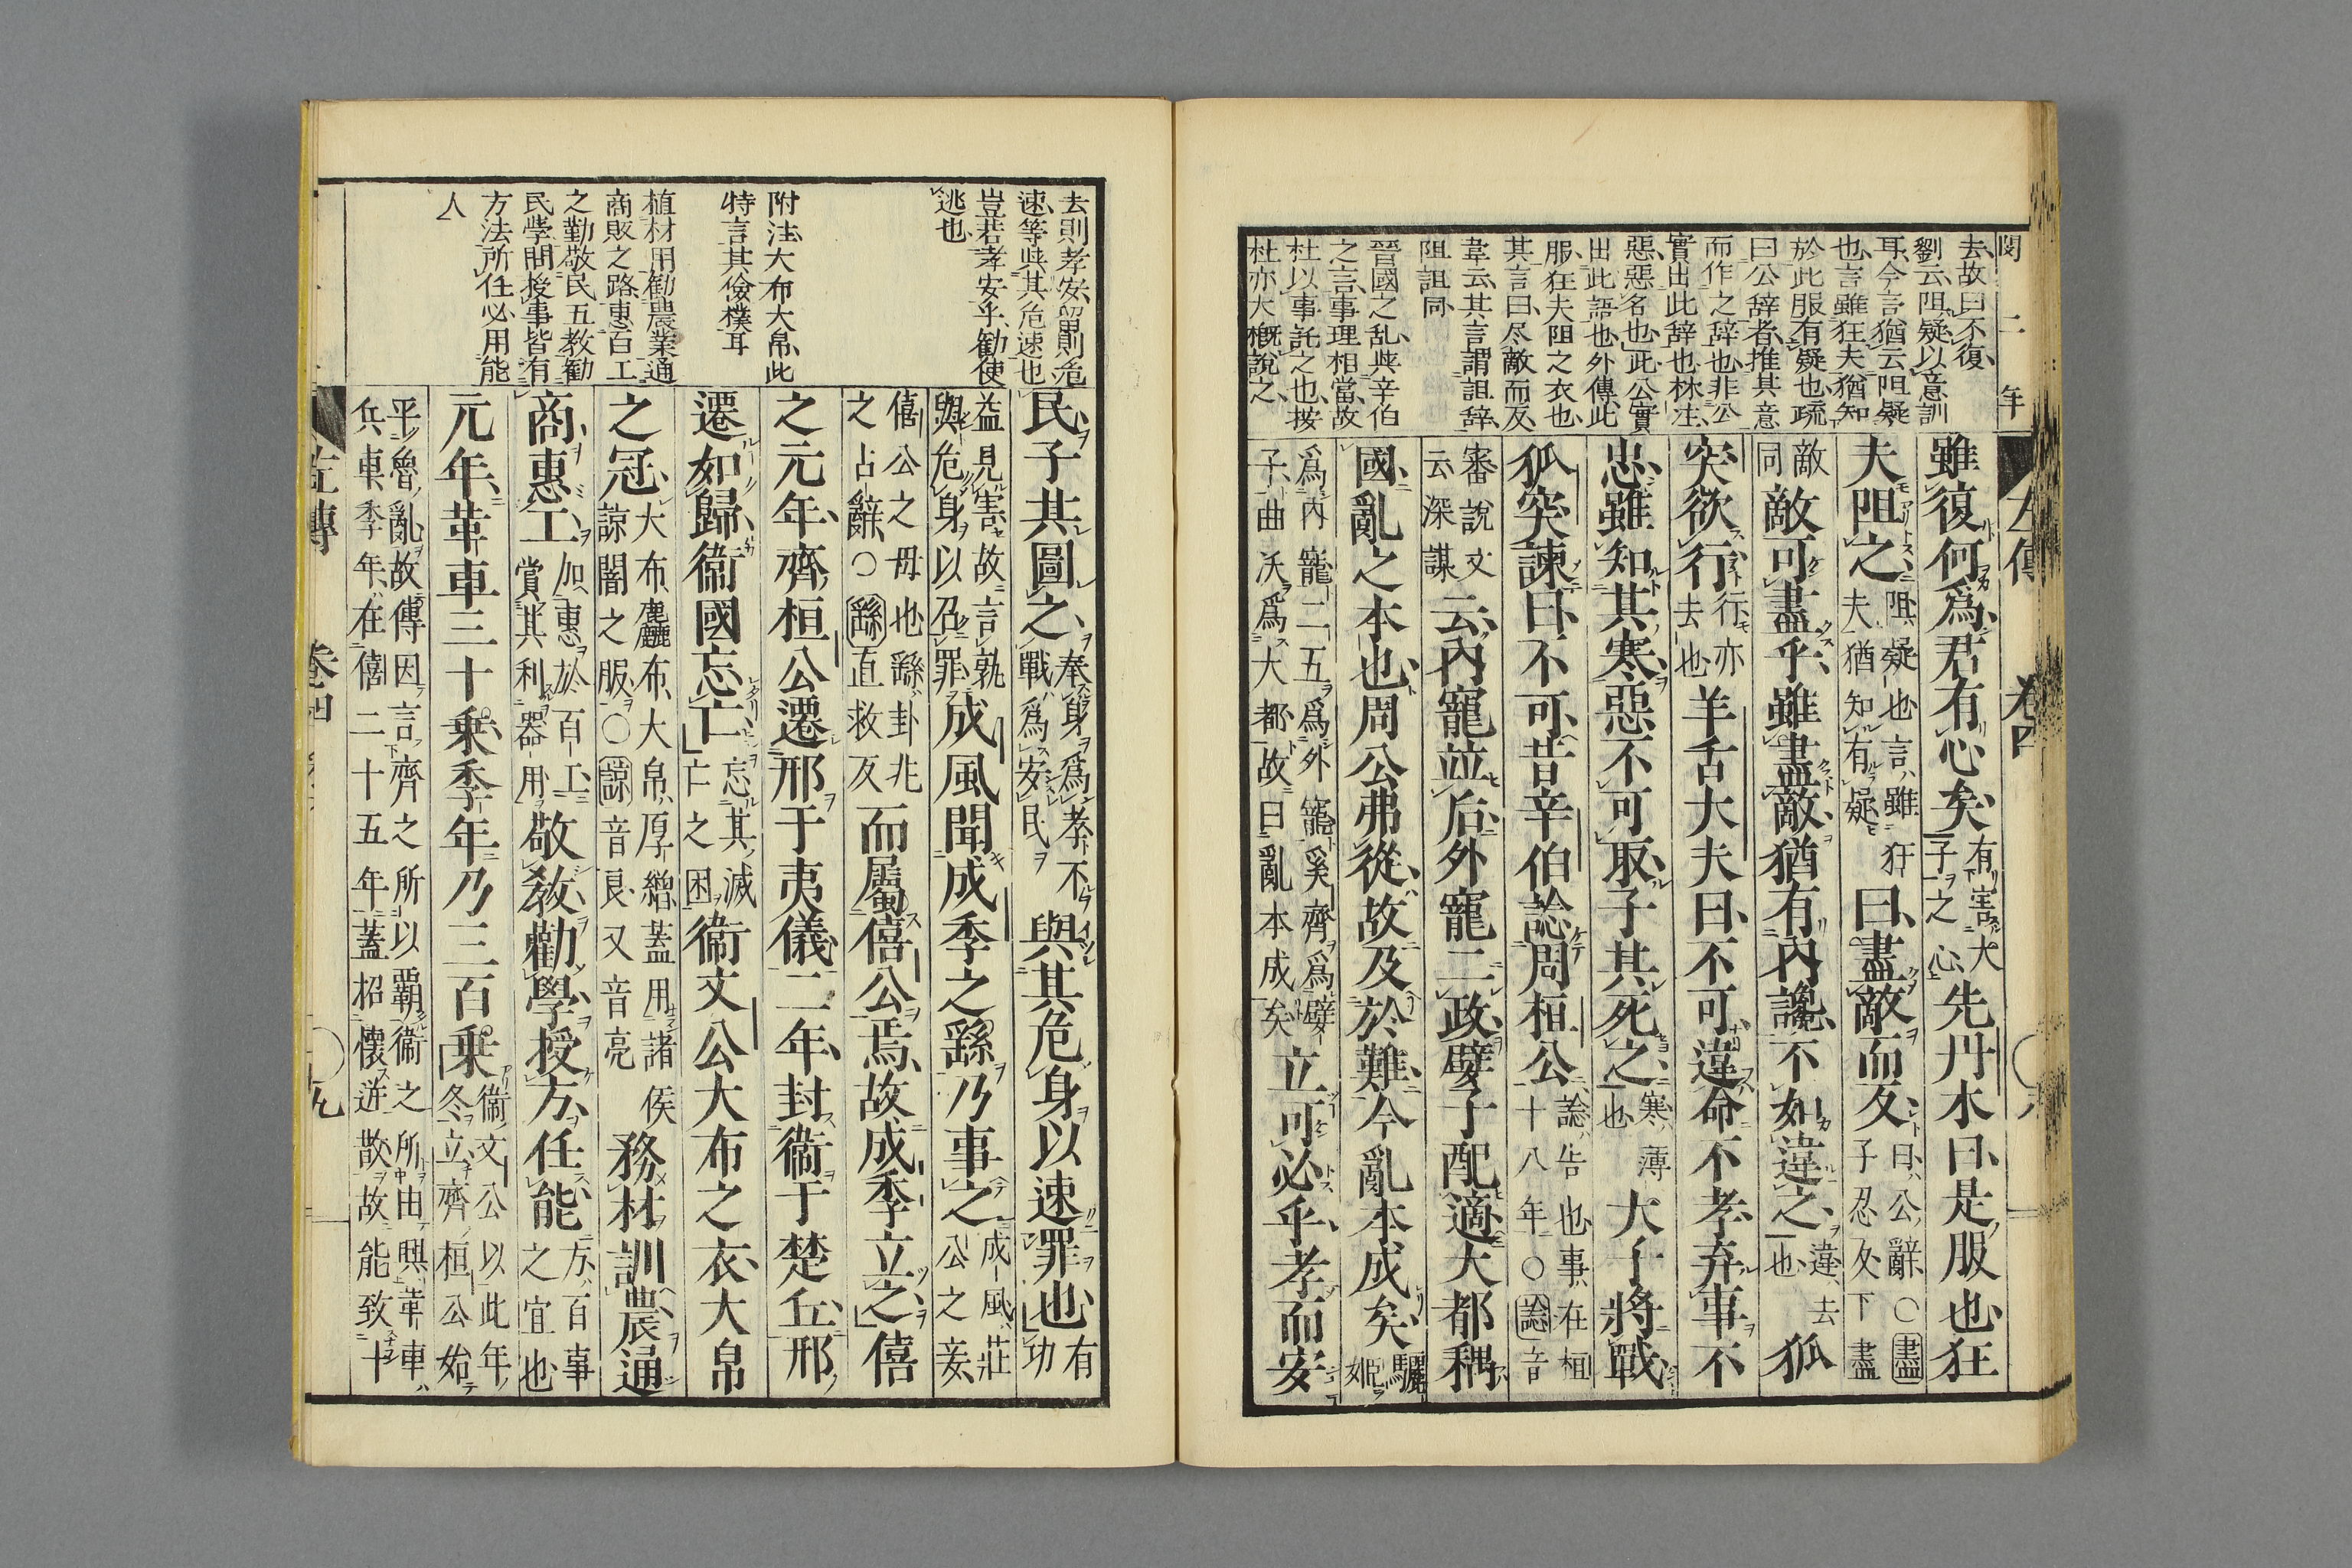 閔二年 左傳 卷四
去故曰不復
劉云阻疑以意訓
耳今言猶云阻疑
也言雖狂夫猶知
於此服有疑也疏
曰公辞者推其意
而作之辞也非公
實出此辞也林注
惡惡名也此公實
出此語也外傳此
服狂夫阻之衣也
其言曰尽敵而反
韋云其言謂詛辞
阻詛同
晉國之乱與辛伯
之言事理相當故
杜以事託之也按
杜亦大概說之
雖復何爲君有心矣有害大子之心先丹木曰是服也狂
夫阻之阻疑也言雖狂夫猶知有疑曰盡敵而反曰公辭○盡子忍反下
敵同敵可盡乎雖盡敵猶有內讒不如違之違去也狐
突欲行行亦去也羊舌大夫曰不可違命不孝弃事不
忠雖知其寒惡不可取子其死之寒薄也大子將戰
狐突諫曰不可昔辛伯諗周桓公諗告也事在桓十八年○諗音
審說文云深謀云內寵竝后外寵二政嬖子配適大都耦
國亂之本也周公弗從故及於難今亂本成矣驪姬
爲內寵二五爲外寵奚齊爲嬖子曲沃爲大都故曰亂本成矣立可必乎孝而安
去則孝安留則危
速等與其危速也
豈若孝安乎勸使
逃也
附注大布大帛此
特言其儉樸耳
植材用勸農業通
商販之路惠百工
之勤敬民五教勸
民學問授事皆有
方法所任必用能
人
民子其圖之奉身爲孝不戰爲安民與其危身以速罪也有功
益見害故言孰與危身以召罪成風聞成季之繇乃事之成風莊公之妾
僖公之母也繇卦兆之占辭○繇直救反而屬僖公焉故成季立之僖
之元年齊桓公遷邢于夷儀二年封衞于楚丘邢
遷如歸衞國忘亡忘其滅亡之困衞文公大布之衣大帛
之冠大布麤布大帛厚繒蓋用諸侯諒闇之服○諒音良又音亮務材訓農通
商惠工加惠於百工賞其利器用敬敎勸學授方任能方百事之宜也
元年革車三十乗季年乃三百乗衞文公以此年冬立齊桓公始
平魯亂故傳因言齊之所以覇衞之所由興革車兵車季年在僖二十五年蓋招懷迸散故能致十
左傳 卷四 九